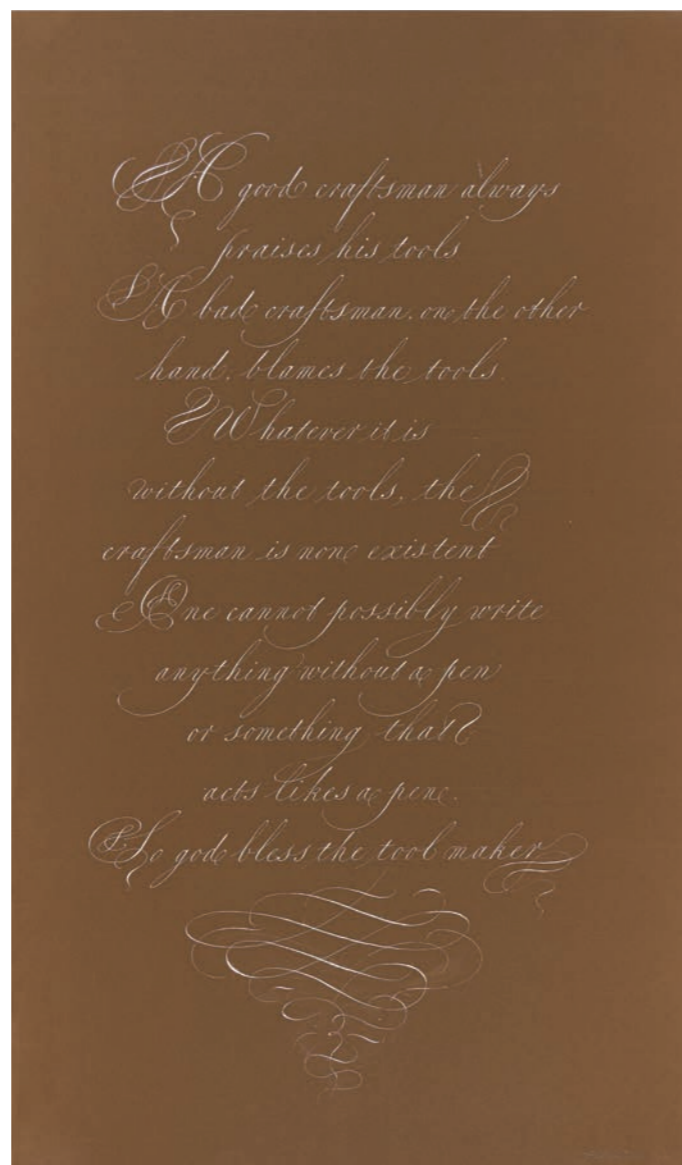 A good craftsman always
praises his tools
A bad craftsman, on the other
hand, blames the tools.
Whatever it is
without the tools, the
craftsman is none existent
One cannot possibly write
anything without a pen
or something that
acts likes a pen.
So god bless the tool maker